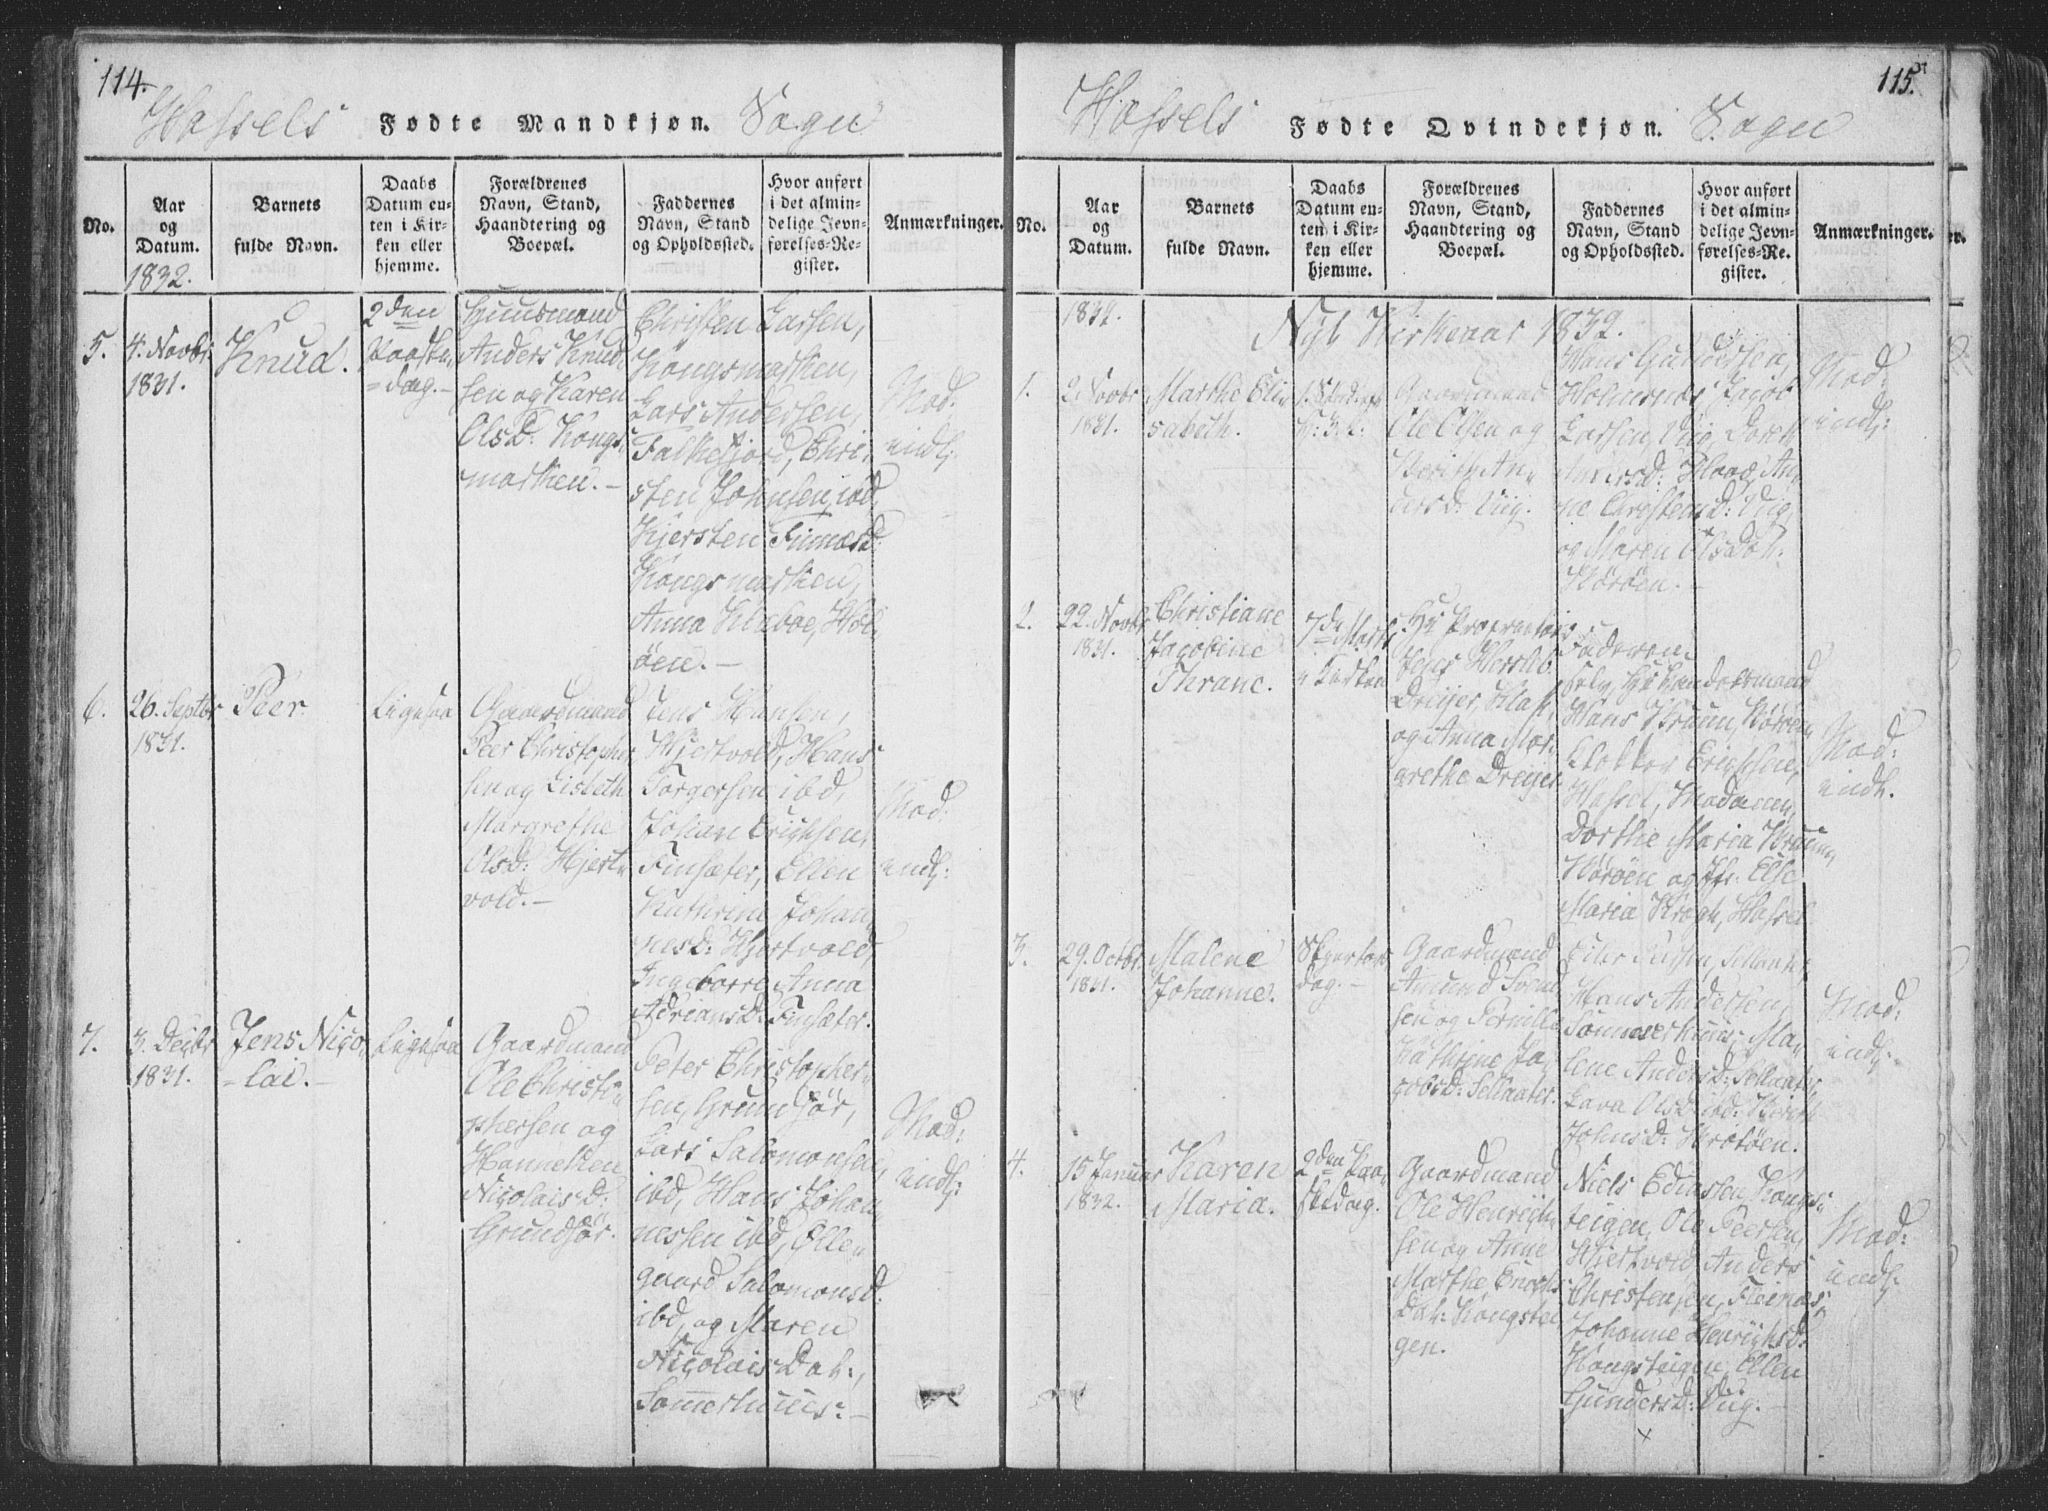 114.
Hassels Fødte Mandkjøn. Sogn
No.
Aar
og
Datum.
Barnets
fulde Navn.
Daabs
Datum en-
ten i Kir-
ken eller
hjemme.
Forældrenes
Navn, Stand,
Haandtering og
Boepæl.
Faddernes
Navn, Stand
og Opholdssted.
Hvor anført
i det almin-
delige Jevn-
førelses-Re-
gister.
Anmærkninger.
1832.
5.
4. Novbr
1831.
Knud.
2den
Paaske
dag.
Huusmand
Anders Knud
sen og Karen
OlsD: Kongs
marken.
Christen Larsen,
Kongsmarken,
Lars Andersen,
Falkefjord, Chri
sten Johnsen ibd,
Kjersten
Kongsmarken,
Anna
øen.
Mod:
indh:
6.
26. Septbr
1831.
Peer
Ligesaa
Gaardmand
Peer Christopher
sen og Lisbeth
Margrethe
OlsD: Hjert
vold.
Jens Hansen,
Hjertvold, Hans
Torgersen ibd,
Johan Erichsen,
Finsæter, Ellen
Kathrine Johan
nesD: Hjertvold,
Ingeborre Anna
AdriansD: Finsæter.
Mod:
indh:
7.
3. Decbr
1831.
Jens Nico
lai.
Ligesaa
Gaardmand
Ole Christo
phersen og
Hanne
NicolaisD:
Grundfør.
Peter Christopher
sen, Grundfør,
Lars Salomonsen,
ibd, Hans Johan
nessen ibd, Elle
gaard SalomonsD:
ibd, og Maren
Nicolais Dat:,
Somerhuus.
Mod:
indh:
115.
Hassels Fødte Qvindekjøn. Sogn
No.
Aar
og
Datum.
Barnets
fulde Navn.
Daabs
Datum en-
ten i Kir-
ken eller
hjemme.
Forældrenes
Navn, Stand,
Haandtering og
Boepæl.
Faddernes
Navn, Stand
og Opholdssted.
Hvor anført
i det almin-
delige Jevn-
førelses-Re-
gister.
Anmærkninger.
1832.
Nyt Kirkeaar 1832.
1.
2. Novbr
1831.
Marthe Eli
sabeth.
Gaardmand
Ole Olsen og
Berith An
dersD: Viig.
Hans Gundersen,
Jacob
Larsen, Viig, Dorth
AndersD: An
ne ChristensD: Viig,
og Maren Ols Dat:
Børøen.
Mod:
indh:
2.
22. Novbr
1831.
Christiane
Jacobine
Thrane.
7de Marts
i Kirken
Hr Proprietair
Jens
Dreyer,
og Anna Mar
grethe Dreyer
Faderen
selv, Hr Handelsmand
Hans Bruun, Børøen
Klokker Erichsen,
Hassel, Madame
Dorthe Maria Bruun,
Børøen og Jfr: Else
Maria Krogh, Hassel
Mod:
indh.
3.
29. Octbr
1831.
Malene
Johanne.
Skjertors
dag.
Gaardmand
Amund Svend
sen og Pernille
Kathrine Ja
cobsD: Selnæter.
Hans Andersen,
Sommerhuus, Ma
lene AndersD:
Lava OlsD: ibd: Berith
JohnsD:
Mod:
indh:
4.
15 Januar
1832.
Karen
Maria.
2den Paa
skedag.
Gaardmand
Ole Henrich
sen og Anne
Marthe Enochs
Dat: Kongstei
gen.
Niels Edvarsen, Kongs
teigen, Ole Peersen,
Hjertvold Anders
Christensen, Fleines
Johanne HenrichsD:
Kongsteigen, Ellen
GundersD: Viig.
Mod:
indh:
x